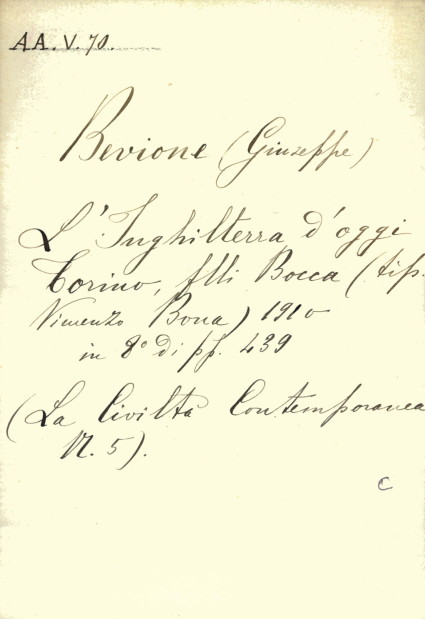 AA. V. 70.
Bevione (Giuseppe)
L'Inghilterra d'oggi
Torino, flli Bocca (tip.
Vincenzo Bona) 1910
in 8° di pp. 439
(La Civiltà Contemporanea
N. 5).
C